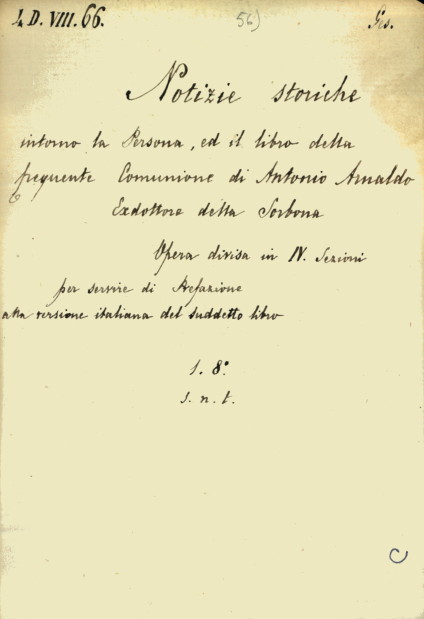 4 D. VIII. 66.
56)
Ges.
Notizie storiche
intorno la Persona, ed il libro della
frequente Comunione di Antonio Arnaldo
Exdottore della Sorbona
Opera divisa in IV. Sezioni
per servire di Prefazione
alla versione italiana del suddetto libro
1. 8º
s. n. t.
C